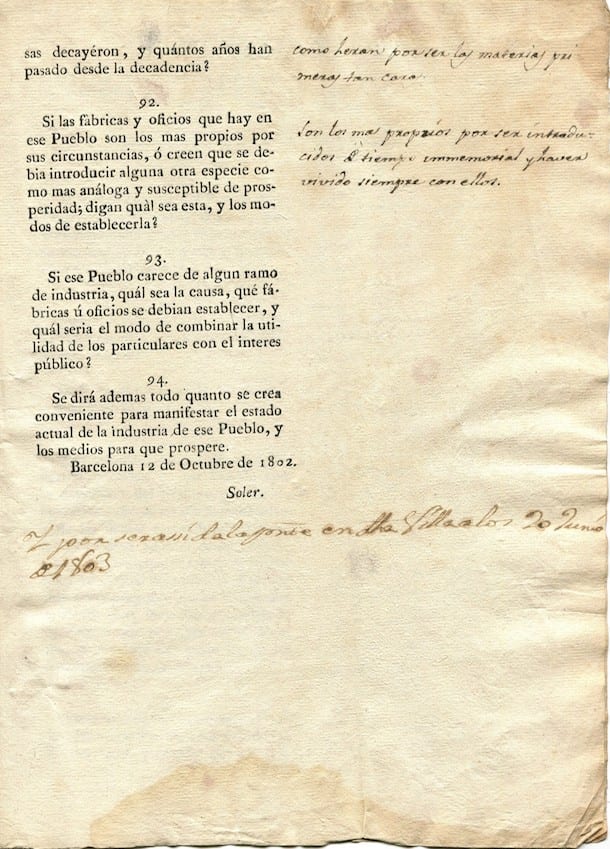 sas decayéron, y quántos años han
pasado desde la decadencia?
como heran por ser las materias pri
meras tan cara.
92.
Si las fábricas y oficios que hay en
ese Pueblo son los mas propios por
sus circunstancias, ó creen que se de-
bia introducir alguna otra especie co-
mo mas análoga y susceptible de pros-
peridad; digan quàl sea esta, y los mo-
dos de establecerla?
Son los mas proprios por ser introdu-
cidos de tiempo immemorial y haver
vivido siempre con ellos.
93.
Si ese Pueblo carece de algun ramo
de industria, quál sea la causa, qué fá-
bricas ú oficios se debian establecer, y
quál seria el modo de combinar la uti-
lidad de los particulares con el interes
público?
94.
Se dirá ademas todo quanto se crea
conveniente para manifestar el estado
actual de la industria de ese Pueblo, y
los medios para que prospere.
Barcelona 12 de Octubre de 1802.
Soler.
Y por ser assi en dha Villa a los 20 Junio
1803